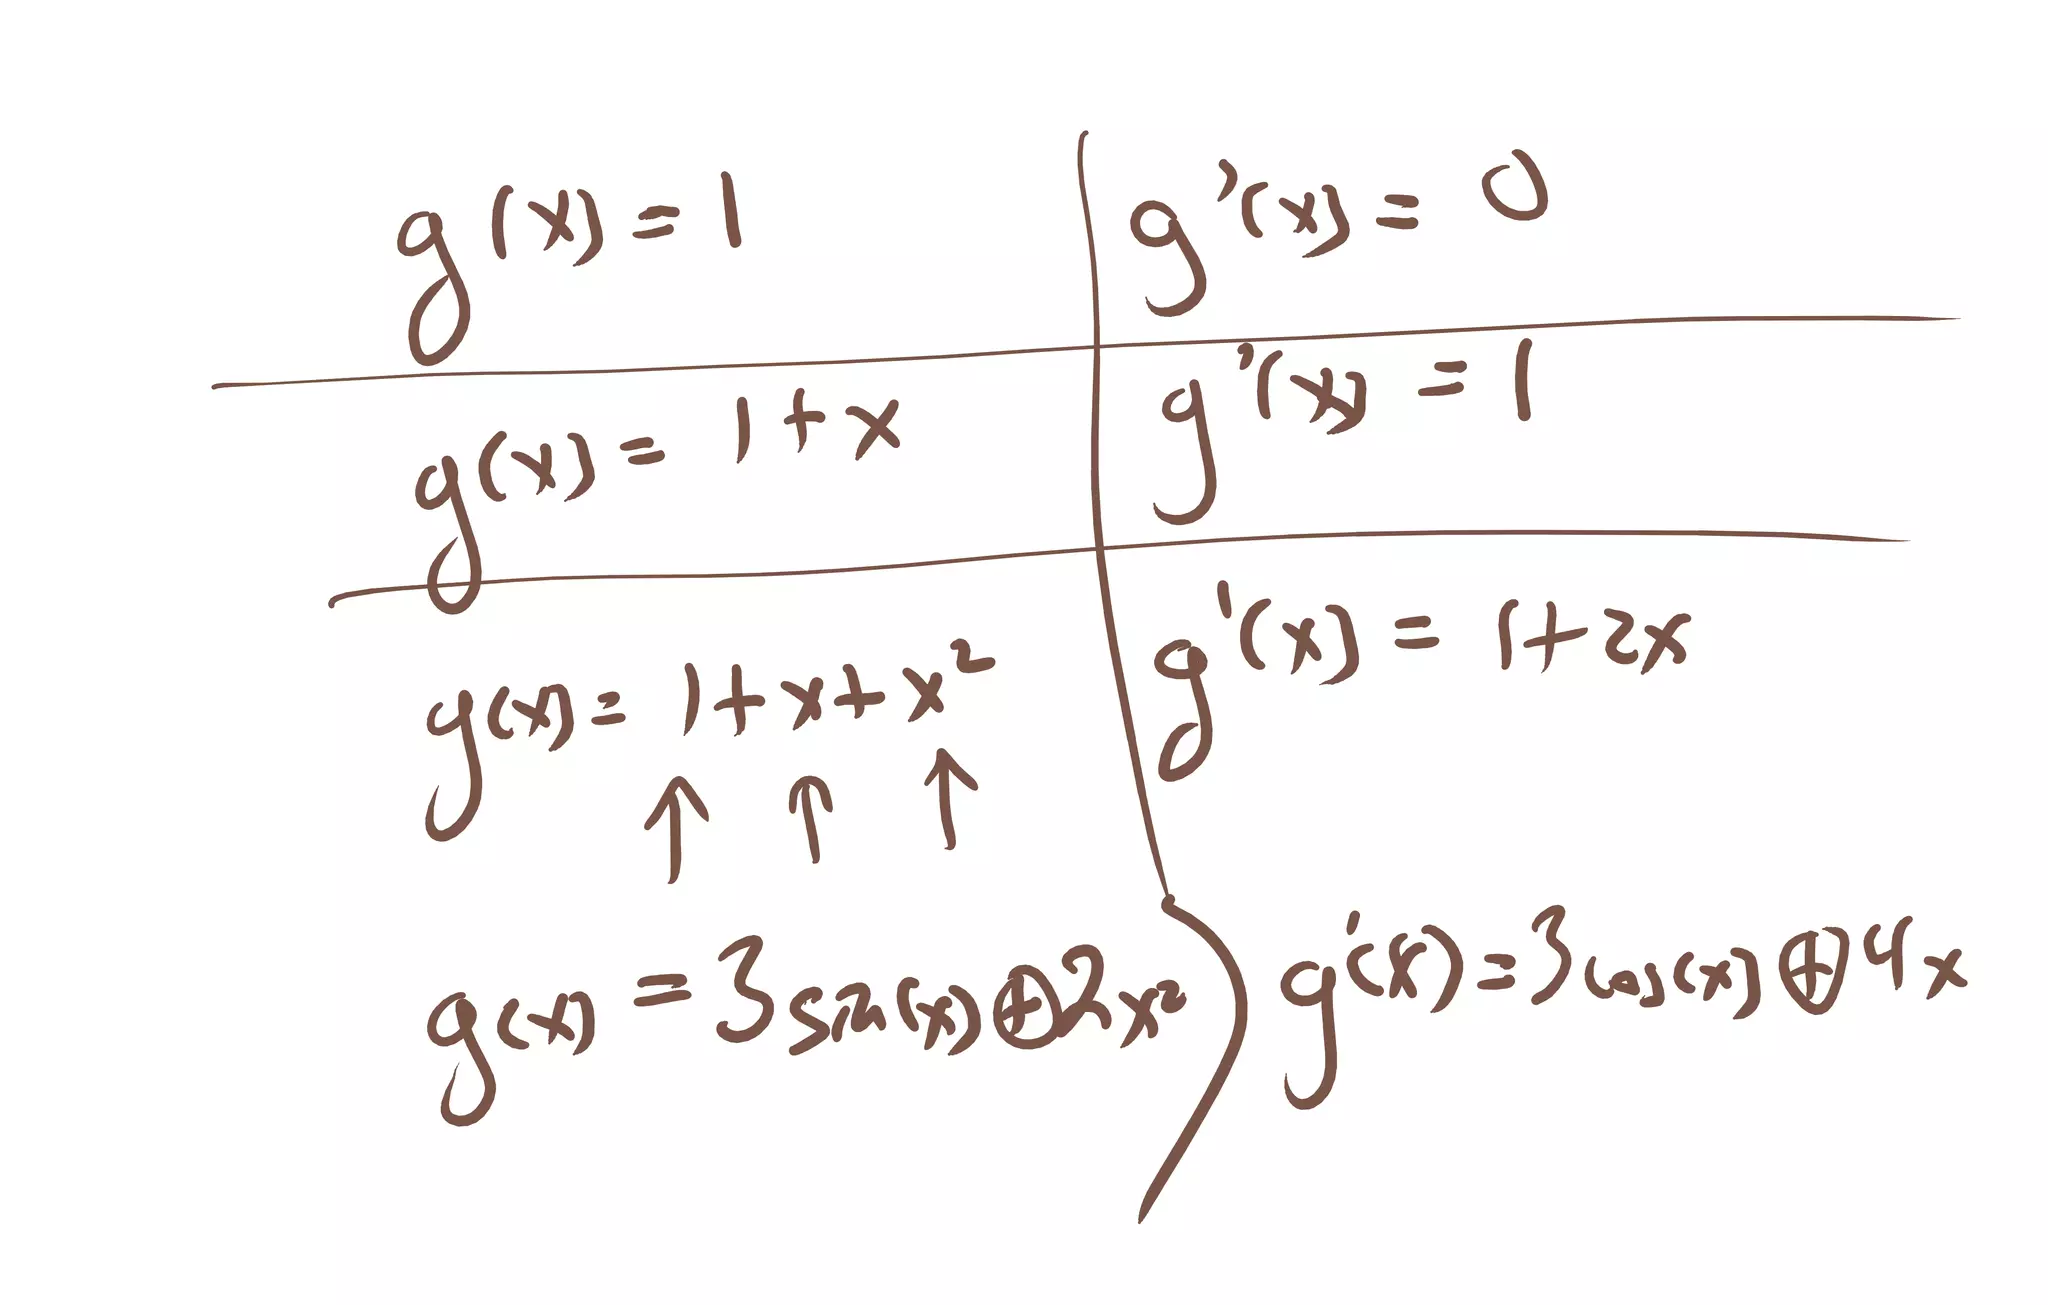 g(x) = 1
g'(x) = 0
g(x) = 1 + x
g'(x) = 1
g(x) = 1 + x + x²
g'(x) = 1 + 2x
↑ ↑ ↑
g(x) = 3 sin(x) ⊕ 2x²
g'(x) = 3 cos(x) ⊕ 4x